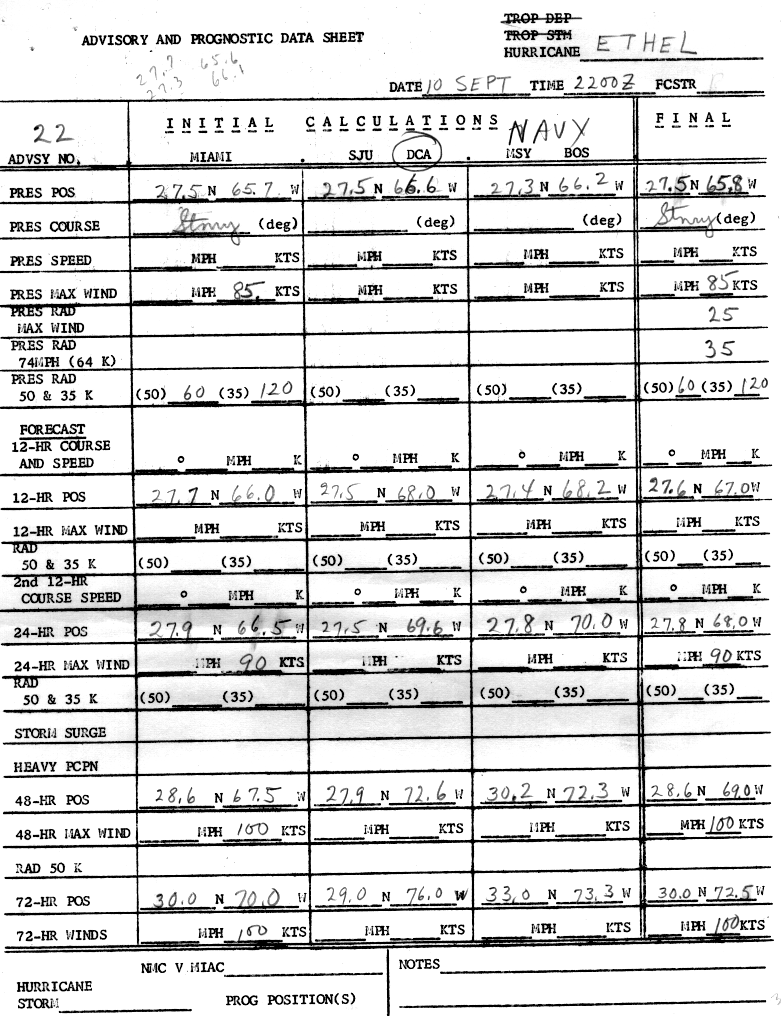 TROP DEP
ADVISORY AND PROGNOSTIC DATA SHEET TROP STM
HURRICANE ETHEL
27.7 65.6
27.3 66.1
DATE 10 SEPT TIME 2200Z FCSTR
22 INITIAL CALCULATIONS NAVY FINAL
ADVSY NO. MIAMI . SJU DCA . MSY BOS
PRES POS 27.5 N 65.7 W 27.5 N 66.6 W 27.3 N 66.2 W 27.5 N 65.8 W
PRES COURSE Stnry (deg) (deg) (deg) Stnry (deg)
PRES SPEED MPH KTS MPH KTS MPH KTS MPH KTS
PRES MAX WIND MPH 85. KTS MPH KTS MPH KTS MPH 85 KTS
PRES RAD
MAX WIND 25
PRES RAD
74MPH (64 K) 35
PRES RAD
50 & 35 K (50) 60 (35) 120 (50) (35) (50) (35) (50) 60 (35) 120
FORECAST
12-HR COURSE
AND SPEED ° MPH K ° MPH K ° MPH K ° MPH K
12-HR POS 27.7 N 66.0 W 27.5 N 68.0 W 27.4 N 68.2 W 27.6 N 67.0 W
12-HR MAX WIND MPH KTS MPH KTS MPH KTS MPH KTS
RAD
50 & 35 K (50) (35) (50) (35) (50) (35) (50) (35)
2nd 12-HR
COURSE SPEED ° MPH K ° MPH K ° MPH K ° MPH K
24-HR POS 27.9 N 66.5 W 27.5 N 69.6 W 27.8 N 70.0 W 27.8 N 68.0 W
24-HR MAX WIND MPH 90 KTS MPH KTS MPH KTS MPH 90 KTS
RAD
50 & 35 K (50) (35) (50) (35) (50) (35) (50) (35)
STORM SURGE
HEAVY PCPN
48-HR POS 28.6 N 67.5 W 27.9 N 72.6 W 30.2 N 72.3 W 28.6 N 69.0 W
48-HR MAX WIND MPH 100 KTS MPH KTS MPH KTS MPH 100 KTS
RAD 50 K
72-HR POS 30.0 N 70.0 W 29.0 N 76.0 W 33.0 N 73.3 W 30.0 N 72.5 W
72-HR WINDS MPH 100 KTS MPH KTS MPH KTS MPH 100 KTS
NMC V MIAC NOTES
HURRICANE
STORM PROG POSITION(S)